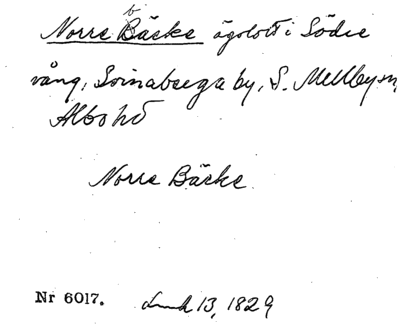 Norre Bäcke ägolott i Södre
vång, Svinaberga by, S. Mellby sn,
Albo hd
Norre Bäcke
Nr 6017. 13, 1829